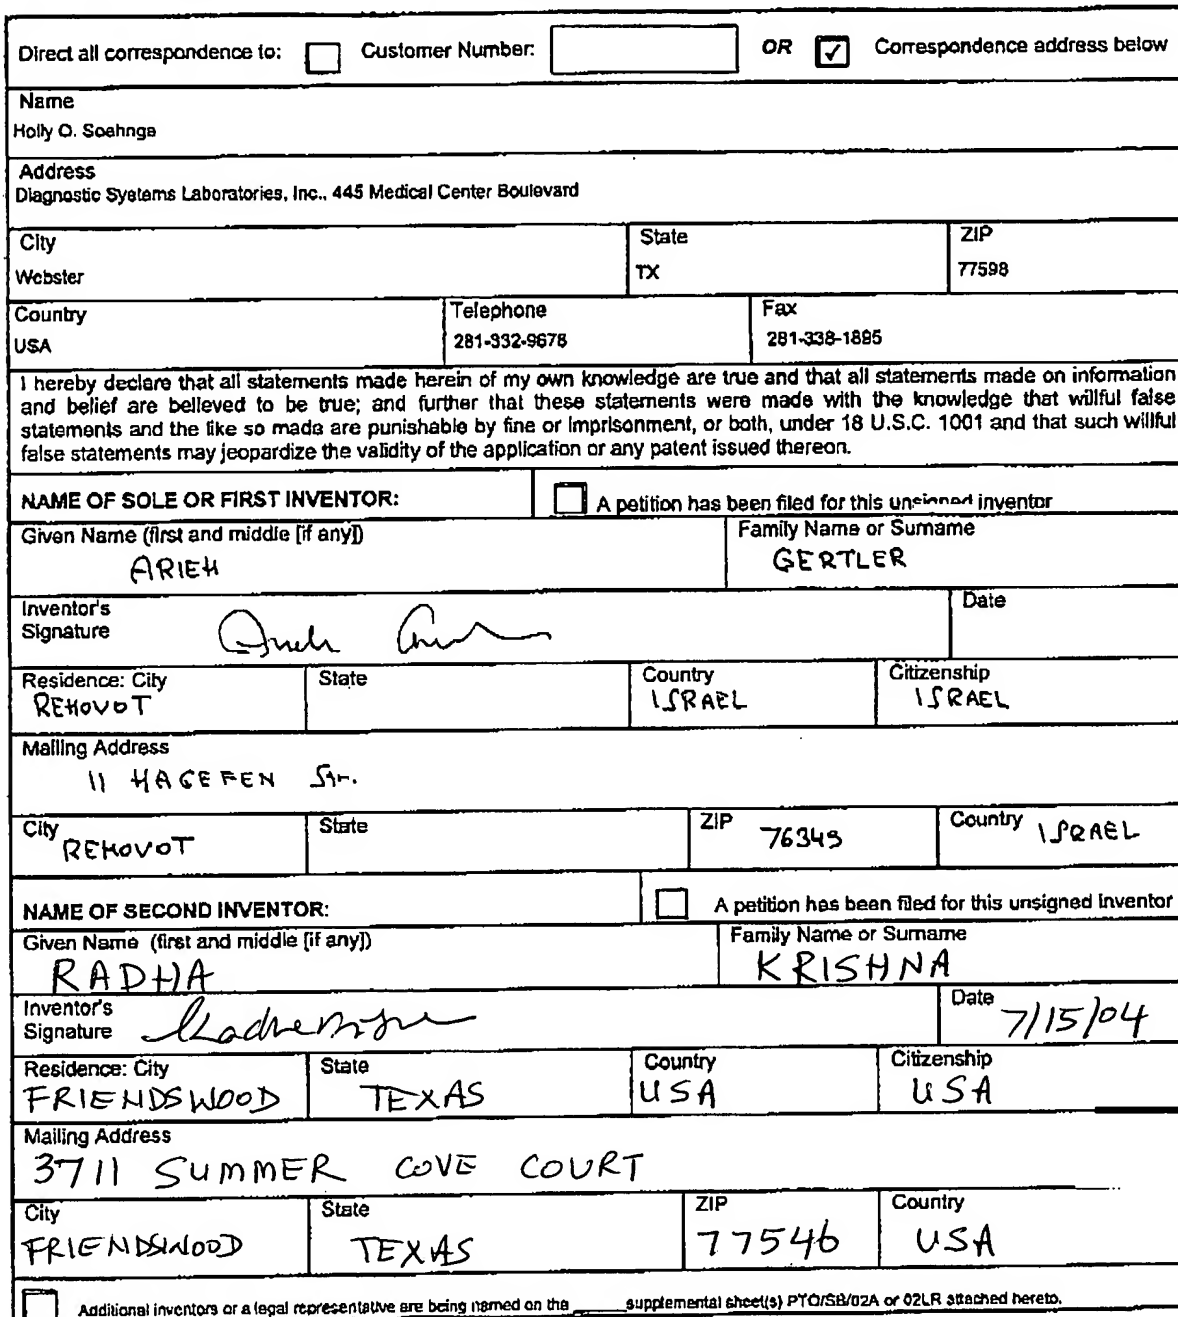 Direct all correspondence to: Customer Number: OR ✓ Correspondence address below
Name
Holly O. Soehnge
Address
Diagnostic Systems Laboratories, Inc., 445 Medical Center Boulevard
City State ZIP
Webster TX 77598
Country Telephone Fax
USA 281-332-9678 281-338-1895
I hereby declare that all statements made herein of my own knowledge are true and that all statements made on information
and belief are believed to be true; and further that these statements were made with the knowledge that willful false
statements and the like so made are punishable by fine or imprisonment, or both, under 18 U.S.C. 1001 and that such willful
false statements may jeopardize the validity of the application or any patent issued thereon.
NAME OF SOLE OR FIRST INVENTOR: A petition has been filed for this unsigned inventor
Given Name (first and middle [if any]) Family Name or Surname
ARIEH GERTLER
Inventor's Date
Signature
Residence: City State Country Citizenship
REHOVOT ISRAEL ISRAEL
Mailing Address
11 HAGEFEN Str.
City State ZIP Country
REHOVOT 76349 ISRAEL
NAME OF SECOND INVENTOR: A petition has been filed for this unsigned inventor
Given Name (first and middle [if any]) Family Name or Surname
RADHA KRISHNA
Inventor's Date
Signature 7/15/04
Residence: City State Country Citizenship
FRIENDSWOOD TEXAS USA USA
Mailing Address
3711 SUMMER COVE COURT
City State ZIP Country
FRIENDSWOOD TEXAS 77546 USA
Additional inventors or a legal representative are being named on the _____ supplemental sheet(s) PTO/SB/02A or 02LR attached hereto.